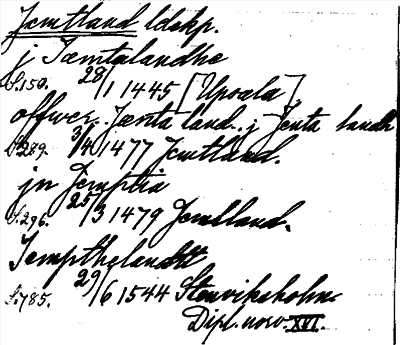 Jemtland ldskp.
j Jæmtalandhe
S.150. 28/1 1445 [Upsala]
offwer Jænta land. j Jenta landh
S.289. 3/4 1477 Jemtland.
jn Jemptia
S.296. 25/3 1479 Jemtland.
Jempthelandtt
S.785. 29/6 1544 Stenviksholm.
Dipl. norv. XVI.